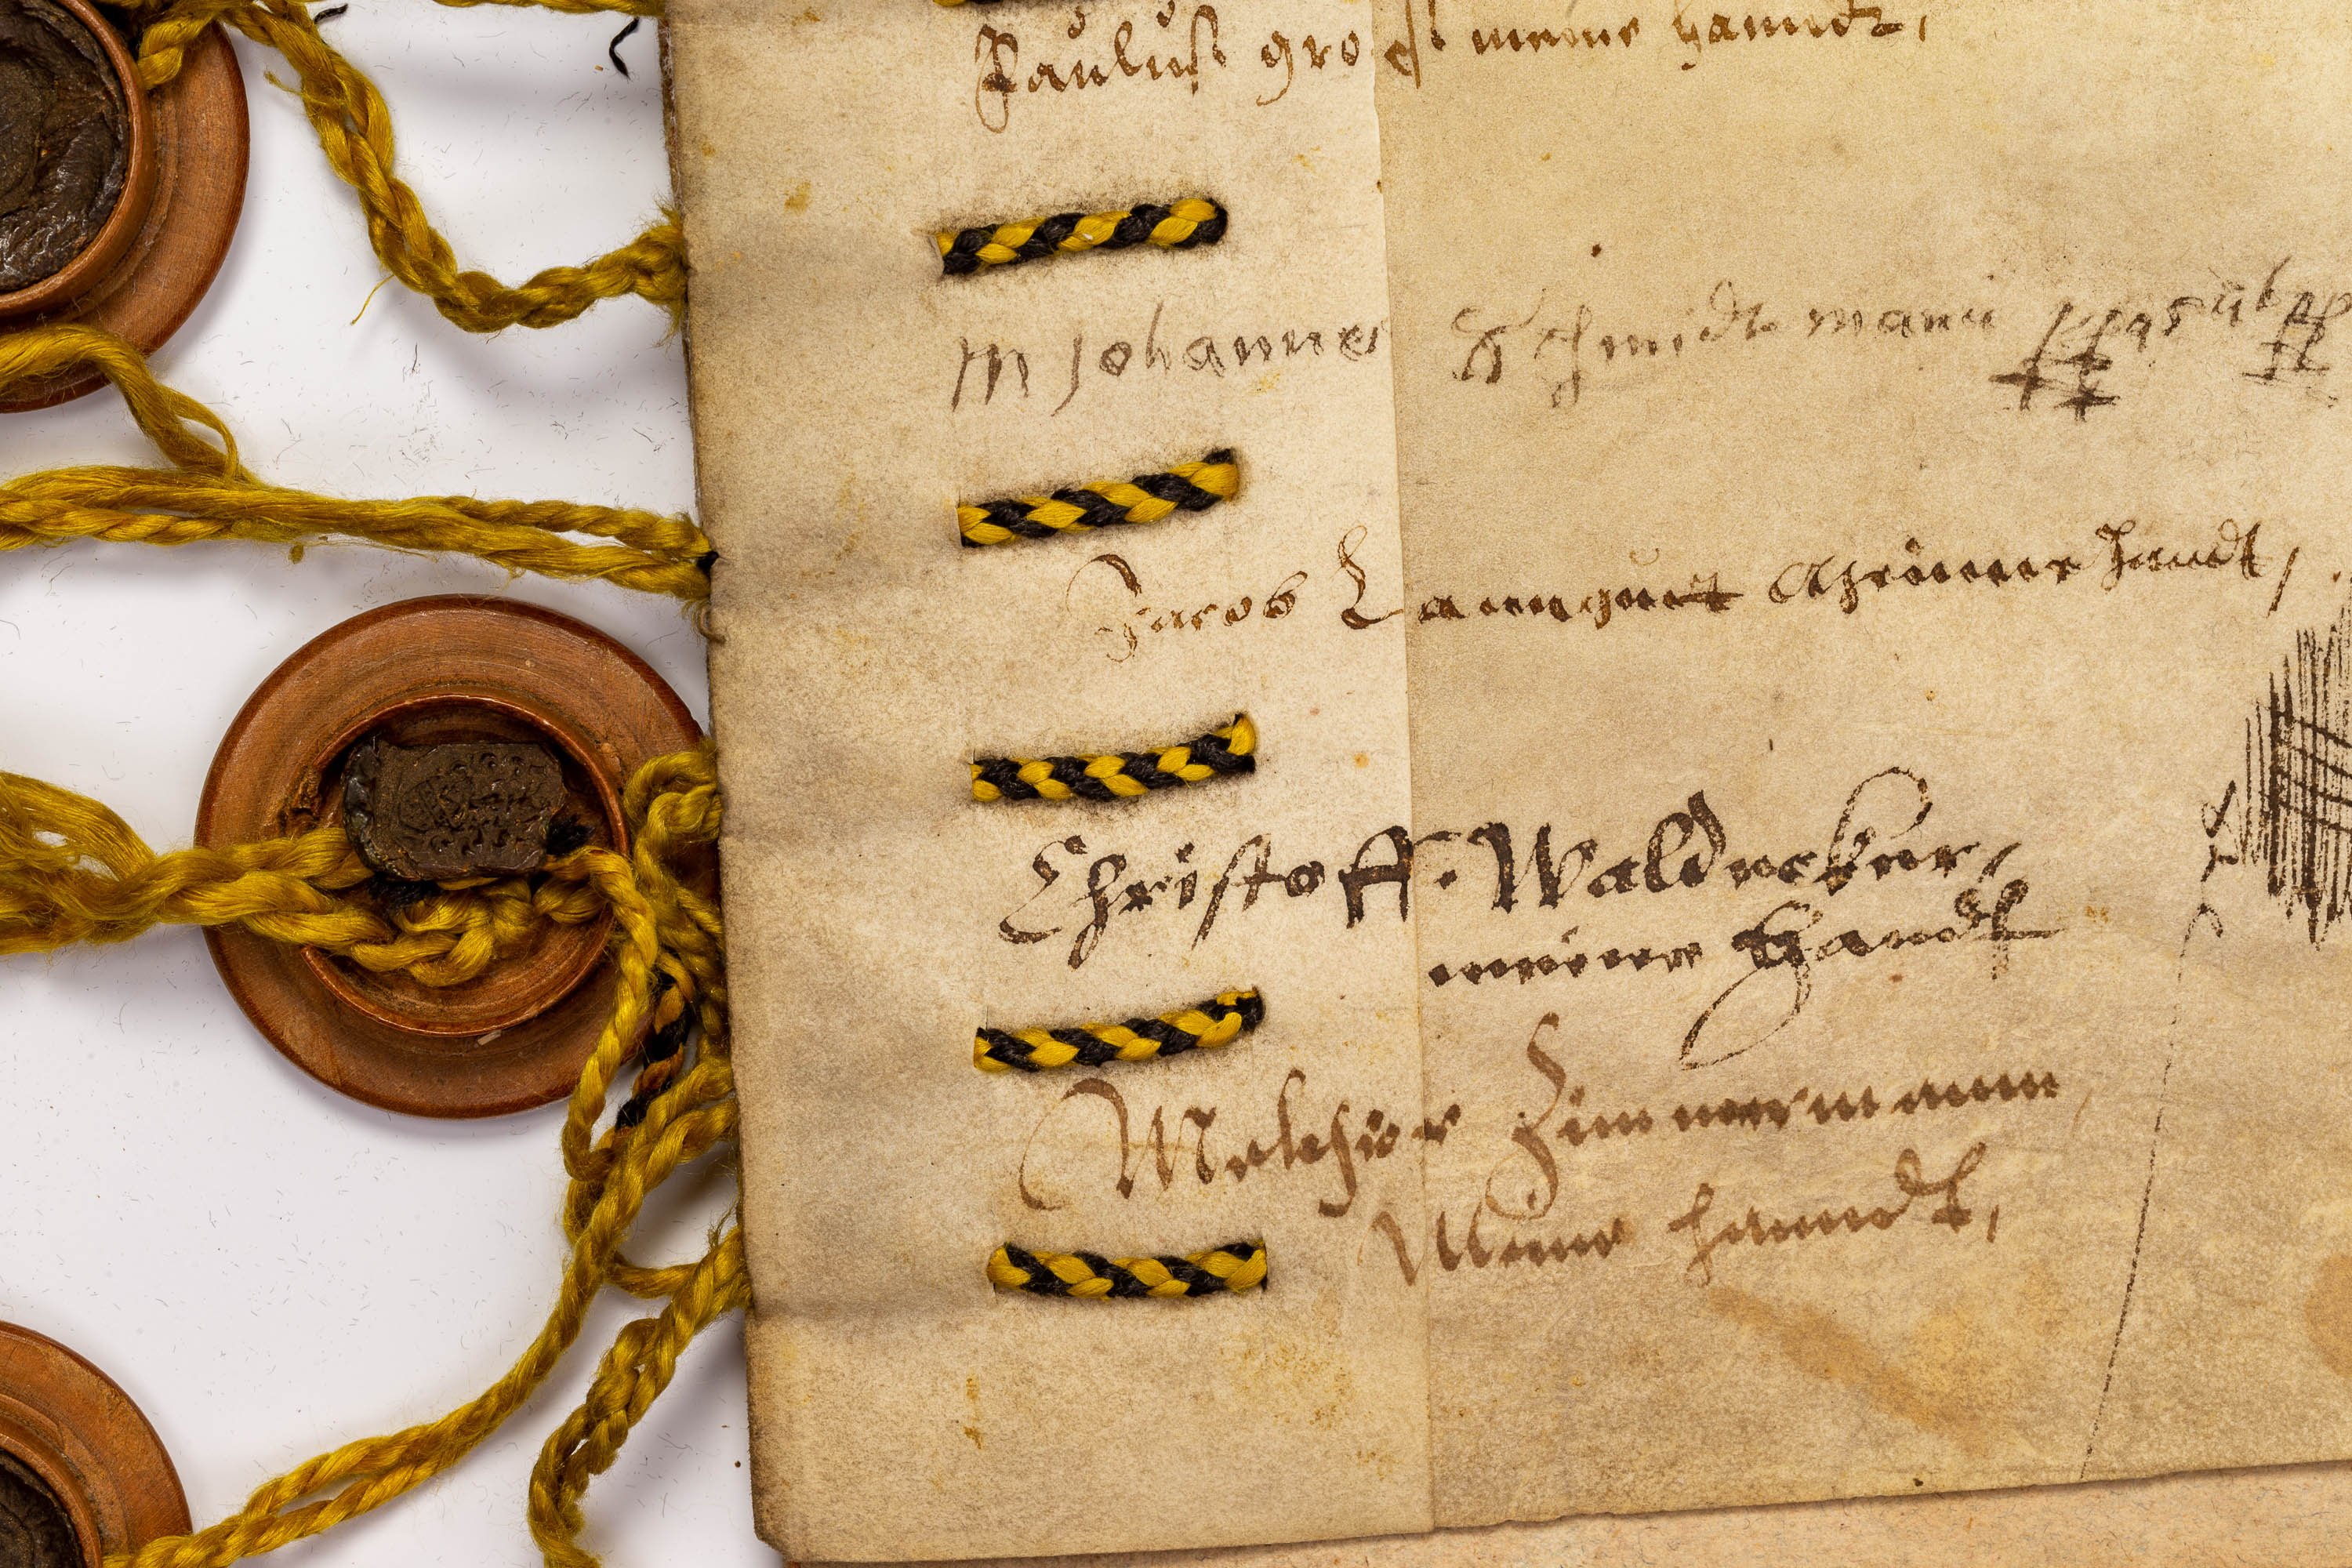 Paulus groest meine hanndt,
M Johannes Schmidt manu
Jacob Lanngutt Meinne handt,
Christoff. Waldnecker,
meine Handt
Melchior Zimmermann,
Meine hanndt,